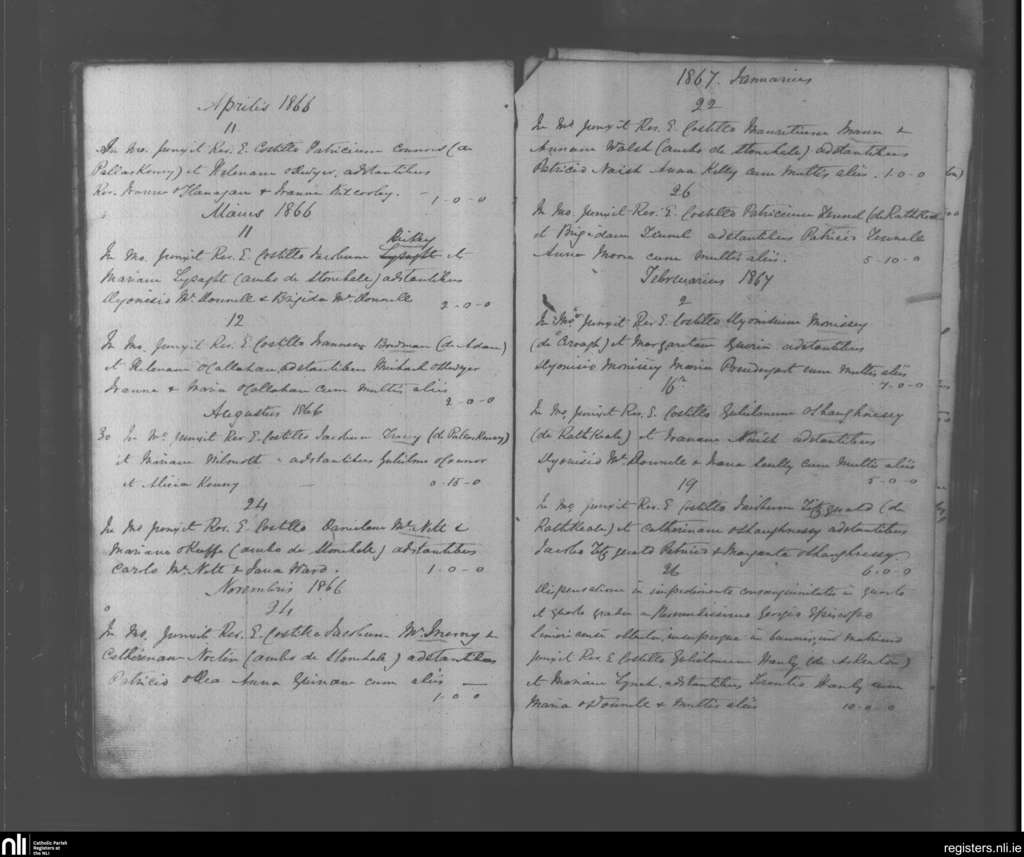 Aprilis 1866
11
In Mo. junxit Rev. E. Costello Patricium Connors (de
Pallaskenry) et Helenam O'Dwyer, adstantibus
Rev. Joanne O'Flanagan & Joanna Kilcorley. - 1-0-0
Maius 1866
11
Hickey
In Mo. junxit Rev. E. Costello Jacobum Lysaght et
Mariam Lysaght (ambo de Stonehale) adstantibus
Dyonisio McDonnell & Brigida McDonnelle 2-0-0
12
In Mo. junxit Rev. E. Costello Joannem Bodman (de Adam)
et Helenam O'Callahan, adstantibus Michael O'Dwyer
Joanne & Maria O'Callahan cum multis aliis 2-0-0
Augustus 1866
30 In Mo. junxit Rev. E. Costello Jacobum Tracy (de Palaskenry)
et Mariam Wilmoth - adstantibus Gulielmo O'Connor
et Alicia Kenny - 0-15-0
24
In Mo junxit Rev. E. Costello Danielem McNelt &
Mariam O'Keeffe (ambo de Stonehale) adstantibus
Carlo McNelt & Jana Ward. 1-0-0
Novembris 1866
24
In Mo. junxit Rev. E. Costello Jacobum McInerny &
Catherinam Noclin (ambo de Stonehale) adstantibus
Patricio O'Dea Anna Guinane cum aliis - 1-0-0
1867. Januarius
22
In Mo junxit Rev. E. Costello Mauritium Mann &
Annam Walsh (ambo de Stonehale) adstantibus
Patricio Naish Anna Kelly cum multis aliis. 1-0-0
26
In Mo. junxit Rev. E. Costello Patricium (de Rathkeale)
et Brigidam adstantibus Patricio
Anna Mona cum multis aliis. 5-10-0
Februarius 1867
2
In Mo junxit Rev. E. Costello Dyonisium Morissey
(de Croagh) et Margaritam Guerin adstantibus
Dyonisio Morissey Maria Prendergast cum multis aliis 7-0-0
16
In Mo junxit Rev. E. Costello Gulielmum O'Shaughnessy
(de Rathkeale) et Joanam Naish adstantibus
Dyonisio McDonnelle & Joana Scully cum multis aliis 5-0-0
19
In Mo junxit Rev. E. Costello Jacobum Fitzgerald (de
Rathkeale) et Catherinam O'Shaughnessy adstantibus
Jacobo Fitzgerald Patricio & Margarita O'Shaughnessy 6-0-0
26
Dispensatione in impedimento consanguinitatis in quarto
et quarto gradu a Reverendissimo Georgio Episcopo
Limericensi obtenta, in matrimo
junxit Rev. E. Costello Gulielmum Hanly (de Askeaton)
et Mariam Lynch, adstantibus Terentio Hanly cum
Maria O'Donnelle & multis aliis 10-0-0
nli Catholic Parish
Registers at
the NLI
registers.nli.ie